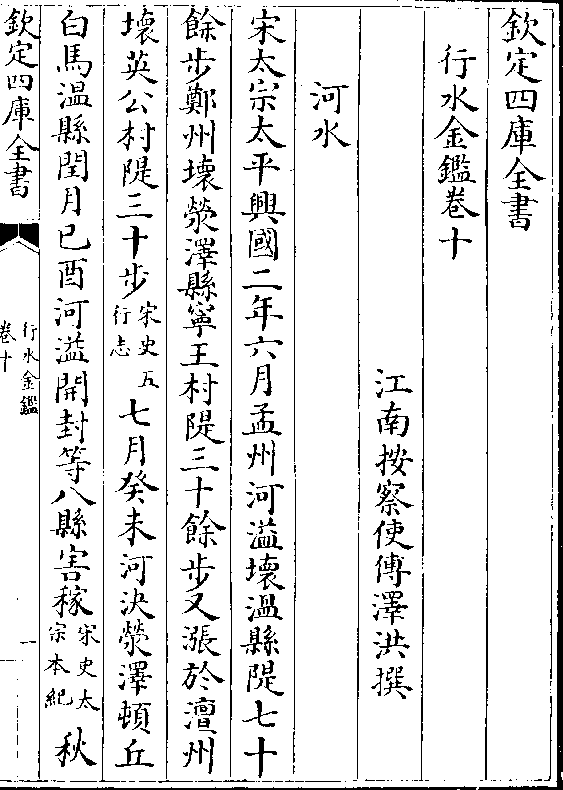 欽定四庫全書
行水金鑑卷十
江南按察使傅澤洪撰
河水
宋太宗太平興國二年六月孟州河溢壞溫縣隄七十
餘步鄭州壞滎澤縣寧王村隄三十餘步又漲於澶州
壞英公村隄三十步宋史五行志七月癸未河決滎澤頓丘
白馬溫縣閏月已酉河溢開封等八縣害稼宋史太宗本紀秋
欽定四庫全書
行水金鑑
卷十
一